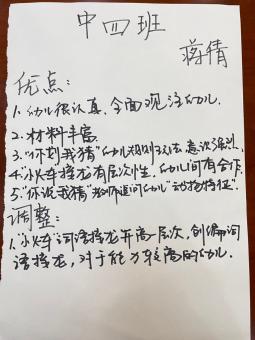 中四班
蒋倩
优点:
1.幼儿很认真,全面观注幼儿.
2.材料丰富.
3."你划我猜"幼儿规则玩法意识强烈.
4.小火车接龙有层次性,幼儿间有合作.
5."你说我猜"老师追问幼儿"动物特征".
调整:
1."小火车"词语接龙开高层次,创编词
语接龙,对于能力较高的幼儿.